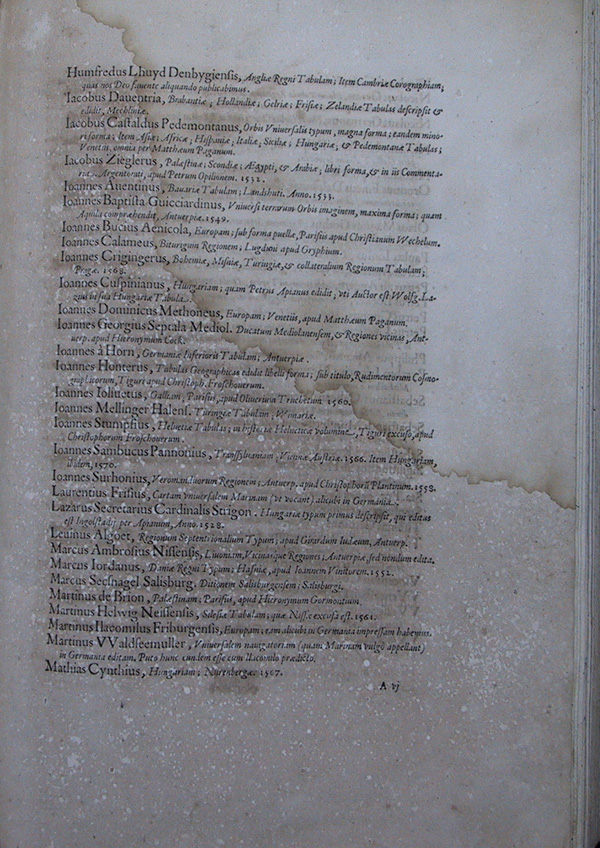 Humfredus Lhuyd Denbygiensis, Angliæ Regni Tabulam; Item Cambriæ Corographiam;
quas nos Deo fauente aliquando publicabimus.
Iacobus Dauentria, Brabantiæ, Hollandiæ; Gelriæ; Frisiæ; Zelandiæ Tabulas descripsit &
edidit, Mechliniæ.
Iacobus Castaldus Pedemontanus, Orbis Vniuersalis typum, magna forma; eandem mino-
ri forma; Item Asiæ; Africæ, Hispaniæ, Italiæ; Siciliæ; Hungariæ, & Pedemontanæ Tabulas;
Venetijs, omnia per Matthæum Paganum.
Iacobus Zieglerus, Palæstinæ; Scondiæ; Ægypti, & Arabiæ, libri forma, & in iis Commenta-
ria. Argentorati, apud Petrum Opilionem. 1532.
Ioannes Auentinus, Bauariæ Tabulam; Landshuti. Anno. 1533.
Ioannes Baptista Guicciardinus, Vniuersi terrarum Orbis imaginem, maxima forma; quam
Aquila compræhendit, Antuerpiæ. 1549.
Ioannes Bucius Aenicola, Europam; sub forma puellæ, Parisius apud Christianum Wechelum.
Ioannes Calameus, Biturigum Regionem; Lugduni apud Gryphium.
Ioannes Crigingerus, Bohemiæ, Misniæ, Turingiæ, & collateralium Regionum Tabulam;
Pragæ. 1568.
Ioannes Cuspinianus, Hungariam; quam Petrus Apianus edidit, vti Auctor est Wolfg. La-
zius in sua Hungariæ Tabula.
Ioannes Dominicus Methoneus, Europam; Venetiis, apud Matthæum Paganum.
Ioannes Georgius Septala Mediol. Ducatum Mediolanensem, & Regiones vicinas, Ant-
uerp. apud Hieronymum Cock.
Ioannes à Horn, Germaniæ Inferioris Tabulam; Antuerpiæ.
Ioannes Honterus, Tabulas Geographicas edidit libelli forma; sub titulo, Rudimentorum Cosmo-
graphicorum, Tiguri apud Christoph. Froschouerum.
Ioannes Iolinetus, Galliam, Parisius, apud Oliuerium Truchetum. 1560.
Ioannes Mellinger Halens. Turingæ Tabulam; Wimariæ.
Ioannes Stumpfius, Heluetiæ Tabulas; in historiæ Heluetiæ volumine, Tiguri excuso, apud
Christophorum Froschouerum.
Ioannes Sambucus Pannonius, Transsyluaniam; Viennæ Austriæ. 1566. Item Hungariam,
ibidem, 1570.
Ioannes Surhonius, Veromanduorum Regionem; Antuerp. apud Christophorū Plantinum. 1558.
Laurentius Frisius, Cartam vniuersalem Marinam (vt vocant) alicubi in Germania.
Lazarus Secretarius Cardinalis Strigon. Hungariæ typum primus descripsit, qui editus
est Ingolstadij per Apianum, Anno. 1528.
Leuinus Algoet, Regionum Septentrionalium Typum; apud Girardum Iudæum, Antuerp.
Marcus Ambrosius Nissensis, Liuoniam, Vicinasque Regiones; Antuerpiæ, sed nondum edita.
Marcus Iordanus, Daniæ Regni Typum; Hafniæ, apud Ioannem Vinitorem. 1552.
Marcus Secsnagel Salisburg. Ditionem Salisburgensem; Salisburgi.
Martinus de Brion, Palæstinam; Parisius, apud Hieronymum Gormontium.
Martinus Helwig Neissensis, Silesiæ Tabulam; quæ Nissæ excusa est. 1561.
Martinus Ilacomilus Friburgensis, Europam; eam alicubi in Germania impressam habemus.
Martinus VValdseemuller, Vniuersalem nauigatoriam (quam Marinam vulgò appellant)
in Germania editam. Puto hunc eundem esse cum Ilacomilo prædicto.
Mathias Cynthius, Hungariam; Nurenbergæ. 1567.
A vj